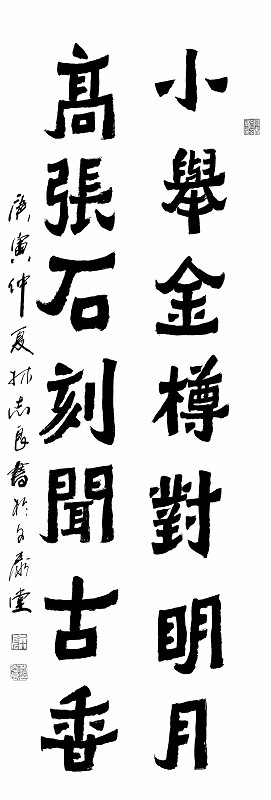 小舉金樽對明月
高張石刻聞古香
庚寅仲夏林志良書於文彝堂